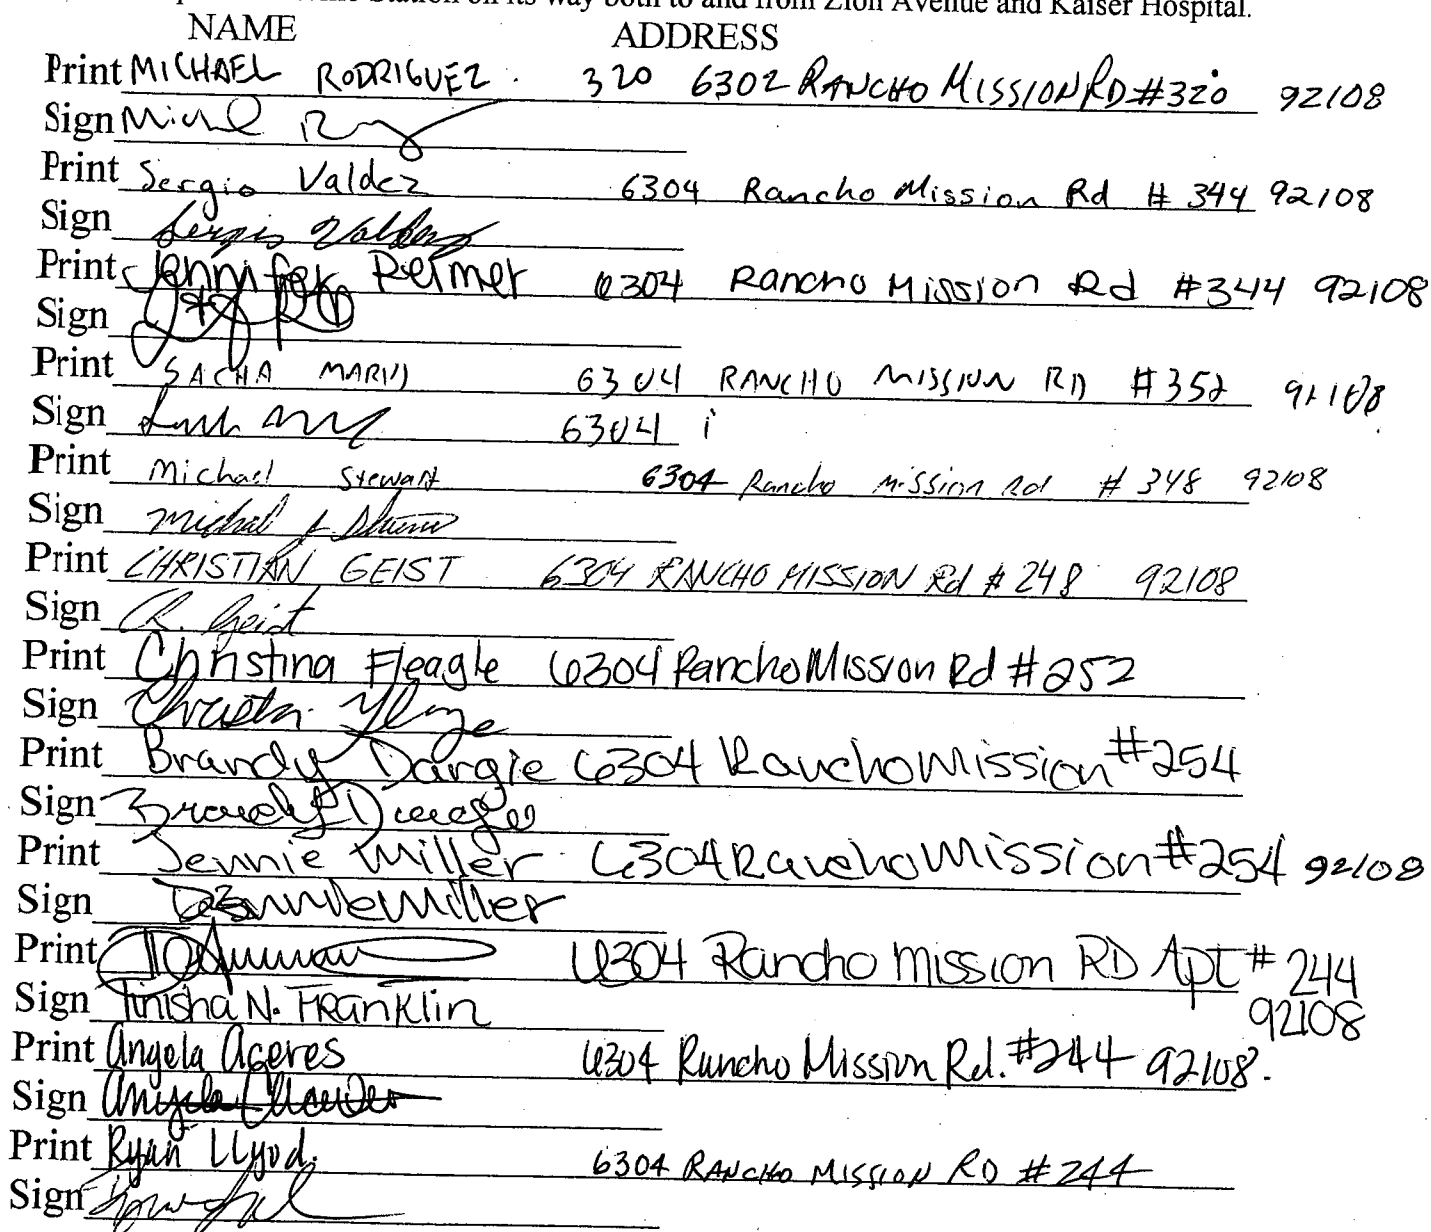 Station on its way both to and from Zion Avenue and Kaiser Hospital.
NAME ADDRESS
Print MICHAEL RODRIGUEZ. 320 6302 RANCHO MISSION RD #320 92108
Sign
Print Sergio Valdez 6304 Rancho Mission Rd # 344 92108
Sign Sergio Valdez
Print Jennifer Reimer 6304 Rancho Mission Rd #344 92108
Sign
Print SACHA 6304 RANCHO MISSION RD #352 92108
Sign 6304 i
Print Michael Stewart 6304 Rancho Mission Rd # 348 92108
Sign
Print CHRISTIAN GEIST 6304 RANCHO MISSION Rd # 248 92108
Sign C. Geist
Print Christina Fleagle 6304 Rancho Mission Rd #252
Sign
Print Brandy Dargie 6304 Rancho Mission #254
Sign Brandy Dargie
Print Jennie Miller 6304 Rancho Mission #254 92108
Sign Jennie Miller
Print 6304 Rancho Mission RD Apt # 244
Sign Tinisha N. Franklin 92108
Print Angela Aceres 6304 Rancho Mission Rd. #244 92108.
Sign Angela
Print Ryan LLyod. 6304 RANCHO MISSION RD #244
Sign